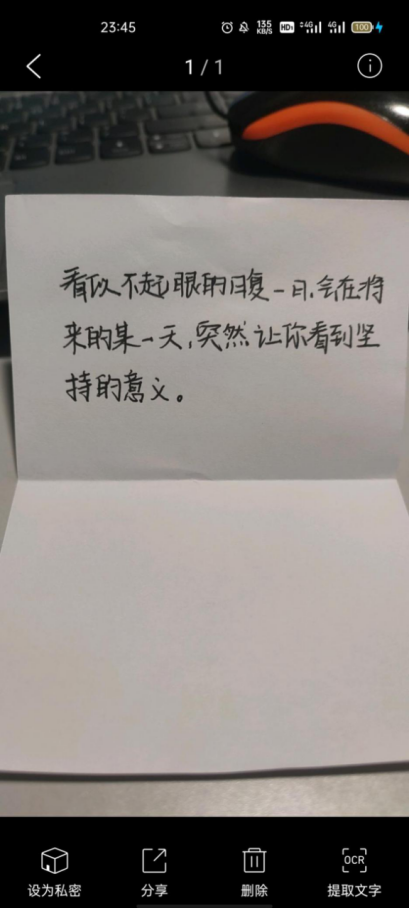 23:45
135
KB/S
HD
4G
4G
100
1 / 1
看似不起眼的日复一日,会在将
来的某一天,突然让你看到坚
持的意义。
OCR
设为私密
分享
删除
提取文字